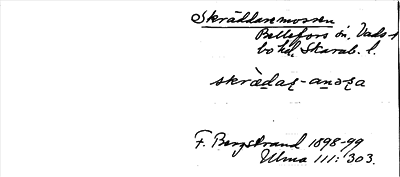 Skräddaremossen
Bällefors sn. Vads-
bo hd. Skarab. l.
skràdaɽ-
F. Bergstrand 1898-99
Ulma 111: 303.